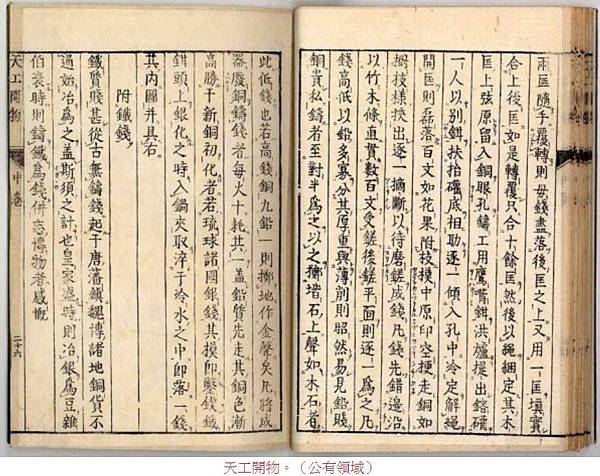 兩匡隨手覆轉則母錢盡落後匡之上又用一匡填實
合上後匡如是轉覆只合十餘匡然後以繩綑定其木
匡上弦原留入銅眼孔鑄工用鷹觜鉗洪爐提出鎔礶
一人以別鉗扶抬礶底相助逐一傾入孔中冷定解繩
開匡則磊落百文如花果附枝摸中原印空梗走銅如
樹枝樣挾出逐一摘斷以待磨鎈成錢凡錢先錯邊沿
以竹木條直貫數百文受鎈後鎈平面則逐一為之凡
錢高低以鉛多寡分其厚重與薄削則昭然易見鉛賤
銅貴私鑄者至對半為之以之擲堦石上聲如木石者
此低錢也若高錢銅九鉛一則擲地作金聲矣凡將成
器廢銅鑄錢者每火十耗其一蓋鉛質先走其銅色漸
高勝于新銅初化者若琉球諸國銀錢其摸印鑿鍥鐵
鉗頭上銀化之時入鍋夾取淬于冷水之中即落一錢
其內圖并具右
附鐵錢
鐵質賤甚從古無鑄錢起于唐藩鎮魏博諸地銅貨不
通始冶為之蓋斯須之計也皇家盛時則冶銀為豆雜
伯衰時則鑄鐵為錢併志博物者感慨
天工開物
中卷
二十六
天工開物。（公有領域）